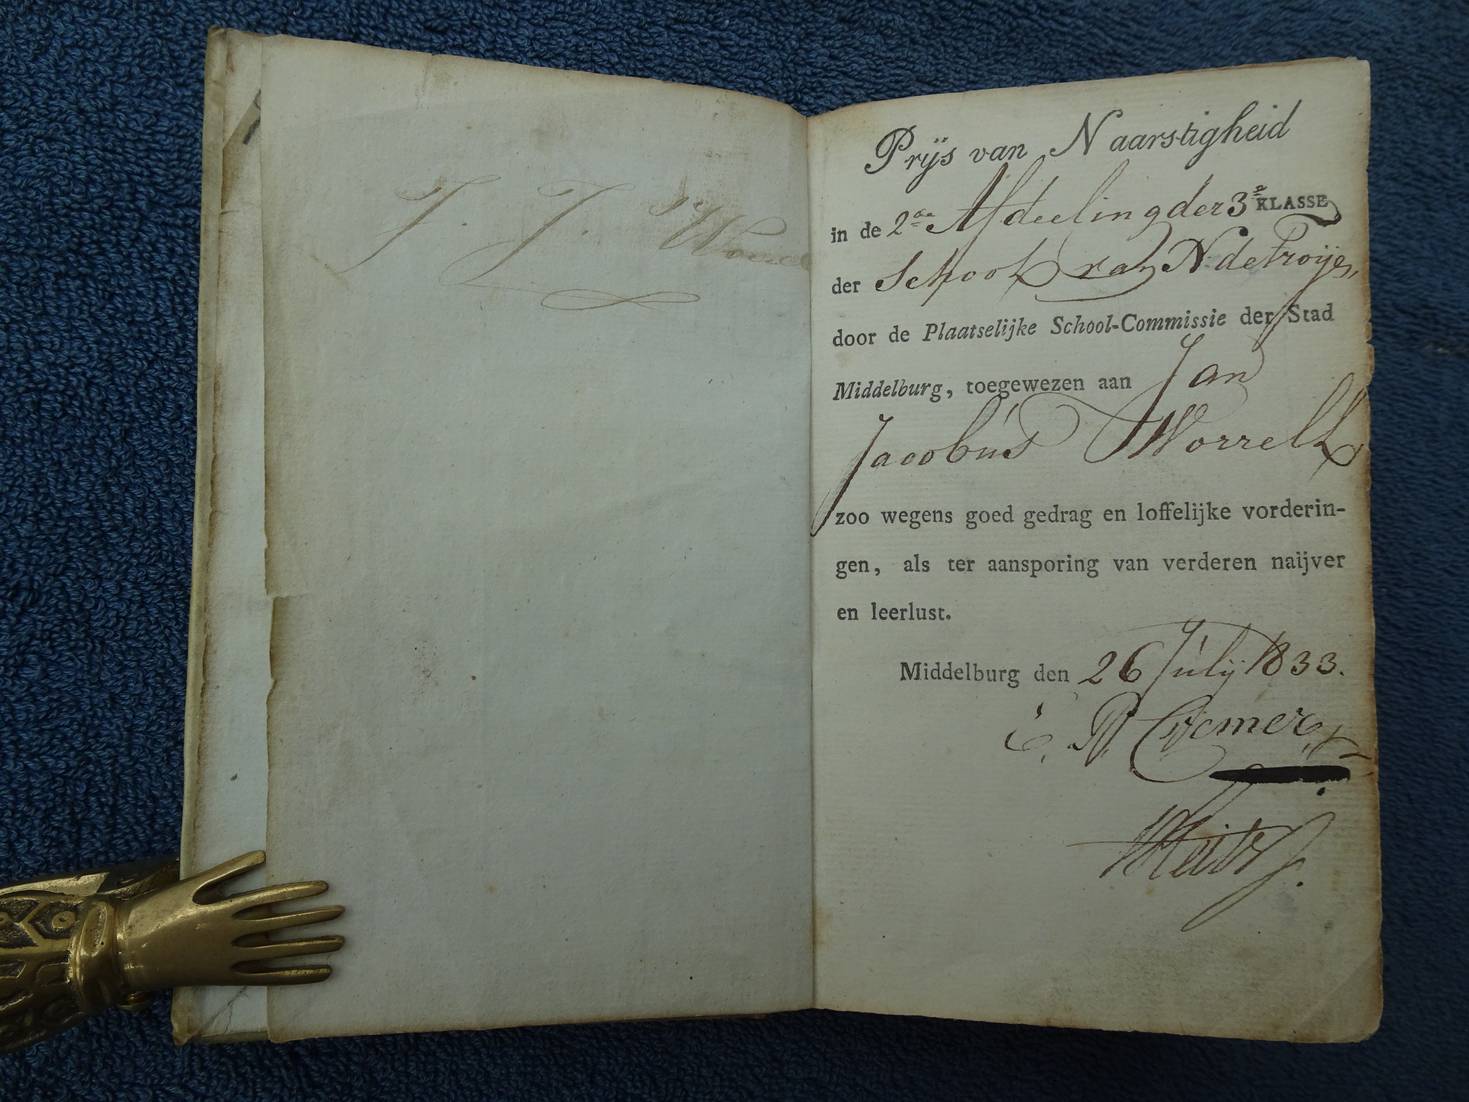 J. J. Worrell
Prijs van Naarstigheid
in de 2de Afdeeling der 3e KLASSE
der School van N de Troije,
door de Plaatselijke School-Commissie der Stad
Middelburg, toegewezen aan Jan
Jacobus Worrell
zoo wegens goed gedrag en loffelijke vorderin-
gen, als ter aansporing van verderen naijver
en leerlust.
Middelburg den 26 July 1833.
Cremer